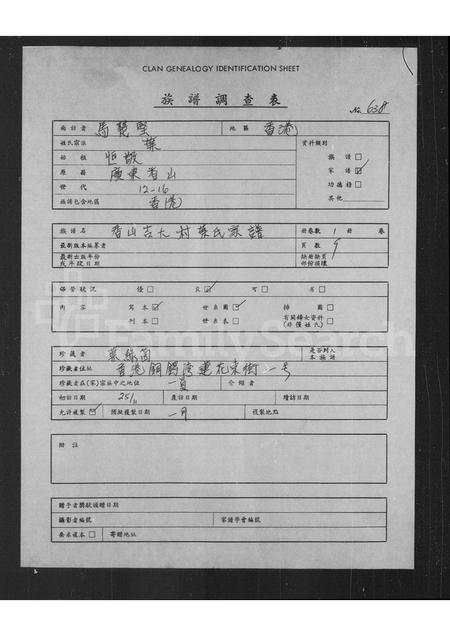 CLAN GENEALOGY IDENTIFICATION SHEET
族譜調查表
No. 638
面訪者 馬 堅 地區 香港
姓氏宗族 葉 資料類別
始祖 恒 族譜 □
原籍 廣東香山 家譜 ☑
世代 12-16 功德錄 □
族譜包含地區 香港 其他
族譜名 香山吉大村葉氏家譜 冊卷數 1 冊 卷
最新版本編纂者 頁數 9
最新出版年份 缺冊缺頁
或手設日期 部份損壞
保管狀況 優 □ 良 ☑ 可 □ 劣 □
內容 寫本 ☑ 世系圖 ☑ 插圖 □
刊本 □ 世系表 □ 有關婦女資料 □
(非僅姓氏)
珍藏者 葉 是否列入
本族譜
珍藏者住址 香港銅鑼灣蓮花東街一號
珍藏者在(家)宗族中之地位 一員 介紹者
初訪日期 25/11 覆訪日期 續訪日期
允許複製 ☑ 預擬複製日期 一月 複製地點
附註
贈予者獎狀頒贈日期
攝影者編號 家譜學會編號
要求複本 □ 寄贈地址
FamilySearch